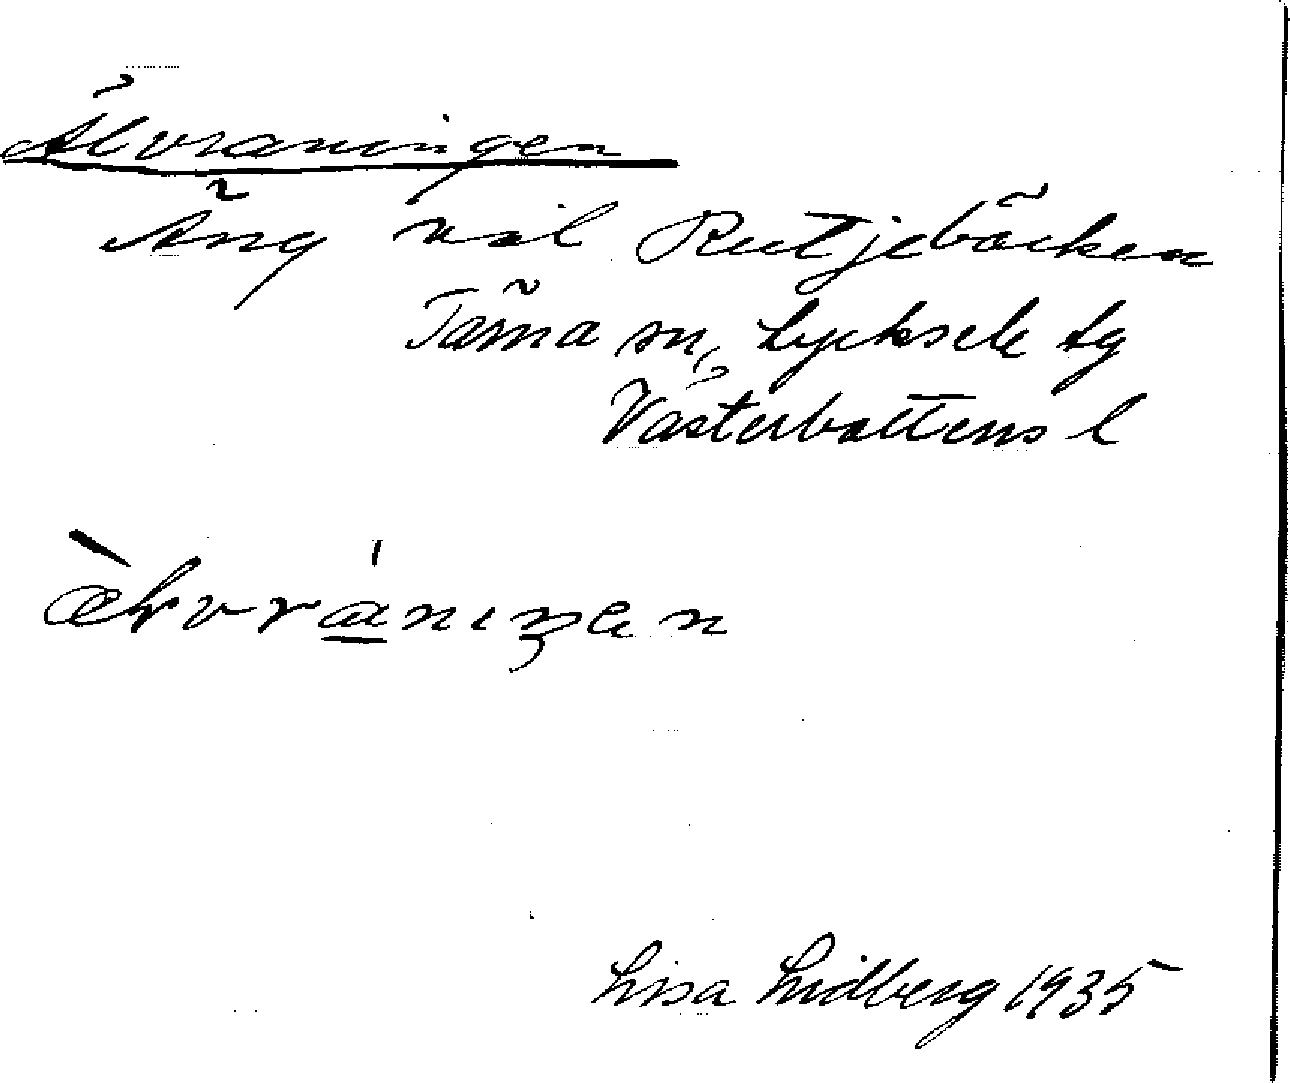 Älvraningen
Äng vid Rutjebäcken
Tärna sn, Lycksele lg
Västerbottens l
Lisa Lidberg 1935